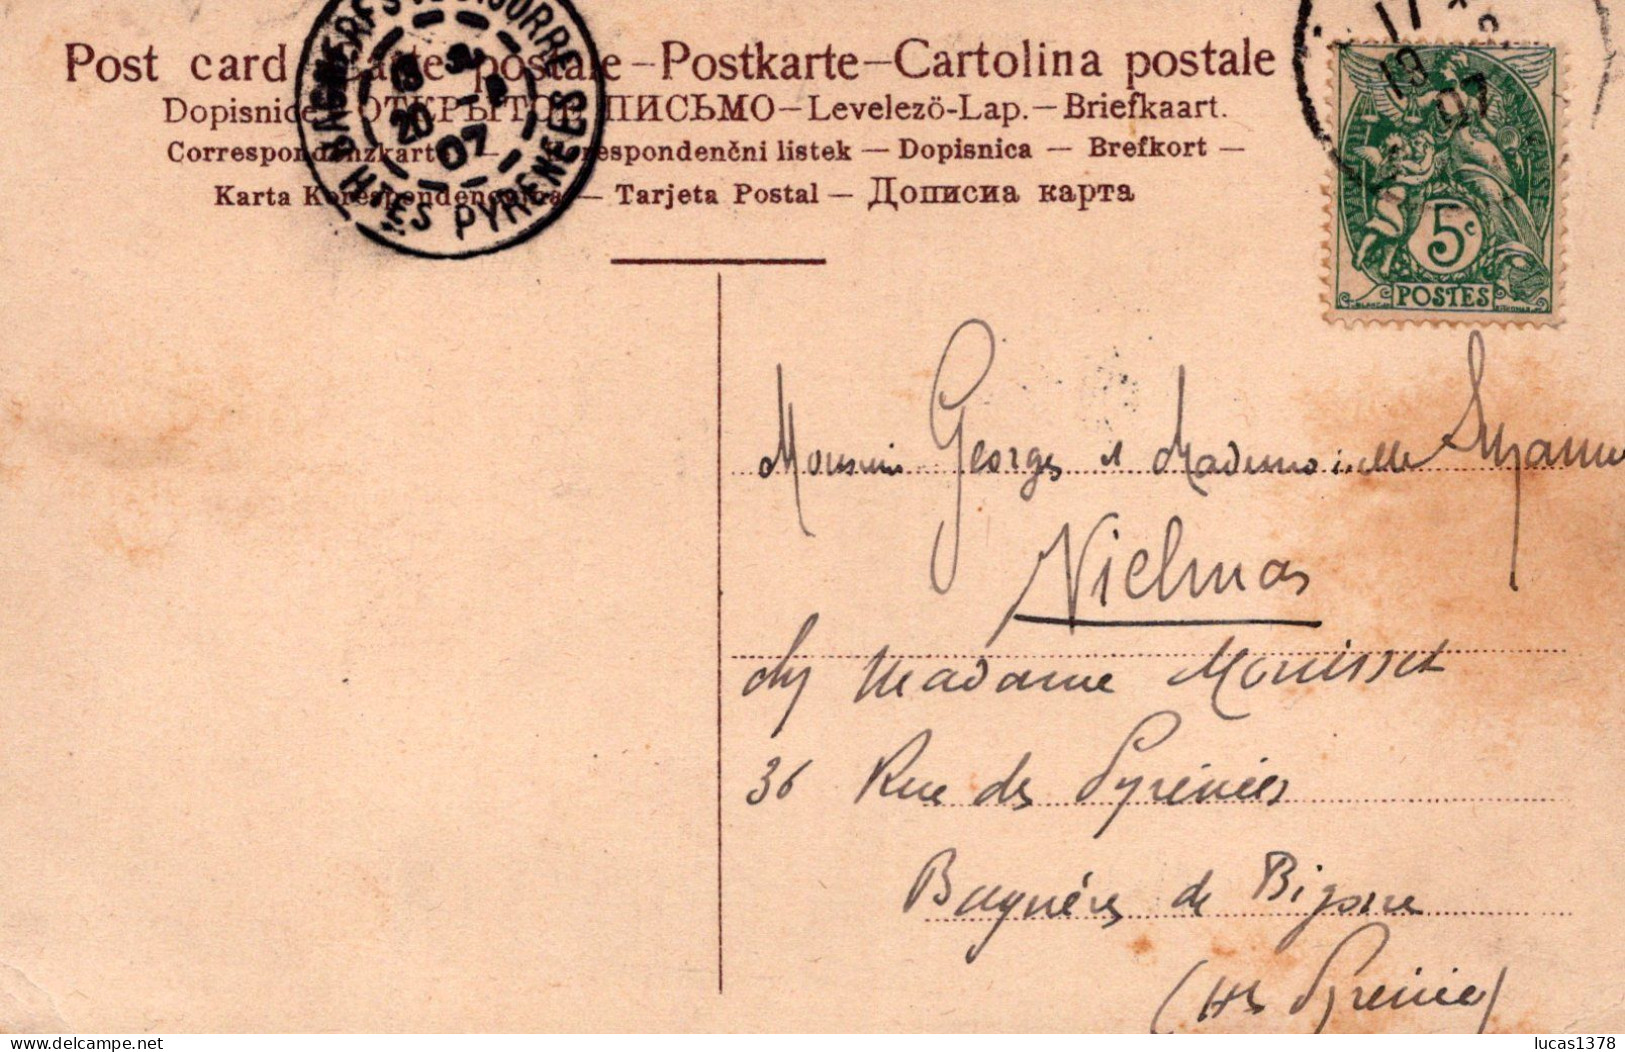 Post card – Carte postale – Postkarte – Cartolina postale
Dopisnice – ОТКРЫТОЕ ПИСЬМО – Levelezö-Lap. – Briefkaart.
Correspondenzkarte – Korespondenčni listek – Dopisnica – Brefkort –
Karta Korespondencyjna – Tarjeta Postal – Дописна карта
BAGNERES DE BIGORRE
20
07
HTES PYRENEES
17
07
5c
POSTES
Monsieur Georges et Mademoiselle Suzanne
Nielmas
chz Madame Mouisset
36 Rue des Pyrénées
Bagnéres de Bigorre
(Htes Pyrénées)
delcampe.net
lucas1378